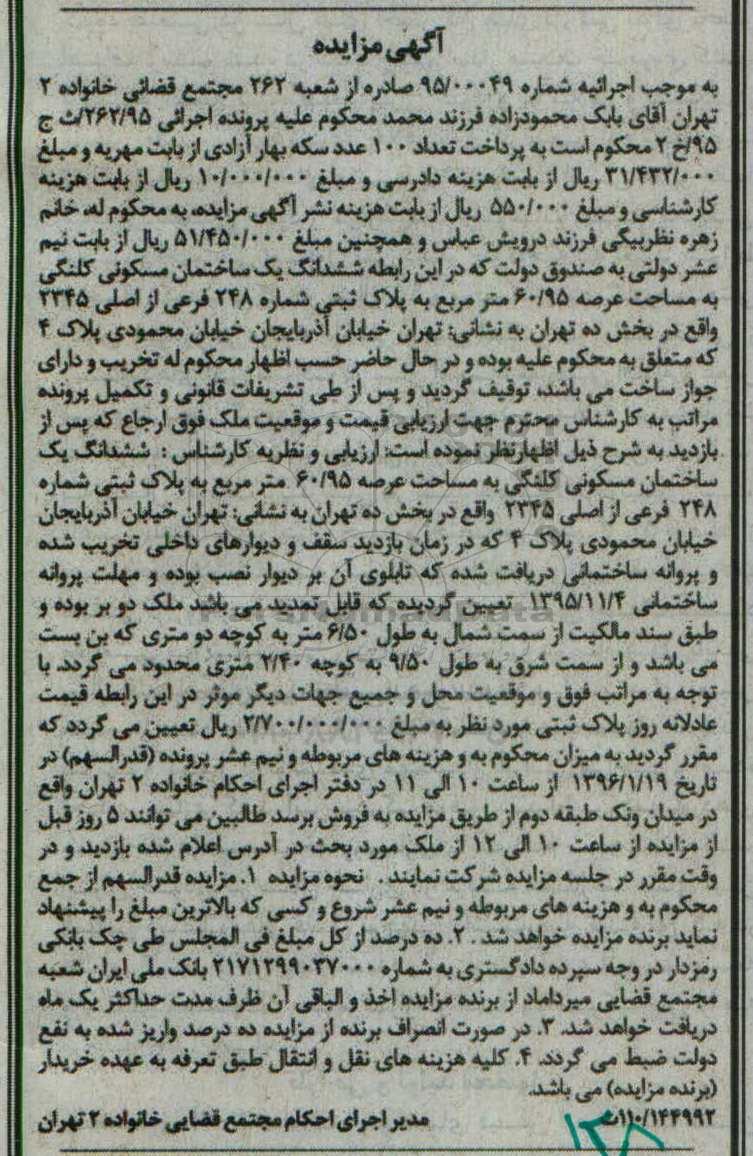 آگهی مزایده
به موجب اجرائیه شماره ۹۵/۰۰۰۴۹ صادره از شعبه ۲۶۲ مجتمع قضائی خانواده ۲
تهران آقای بابک محمودزاده فرزند محمد محکوم علیه پرونده اجرائی ۲۶۲/۹۵/ث ج
۹۵/خ ۲ محکوم است به پرداخت تعداد ۱۰۰ عدد سکه بهار آزادی از بابت مهریه و مبلغ
۳۱/۴۳۲/۰۰۰ ریال از بابت هزینه دادرسی و مبلغ ۱۰/۰۰۰/۰۰۰ ریال از بابت هزینه
کارشناسی و مبلغ ۵۵۰/۰۰۰ ریال از بابت هزینه نشر آگهی مزایده، به محکوم له، خانم
زهره نظربیگی فرزند درویش عباس و همچنین مبلغ ۵۱/۴۵۰/۰۰۰ ریال از بابت نیم
عشر دولتی به صندوق دولت که در این رابطه ششدانگ یک ساختمان مسکونی کلنگی
به مساحت عرصه ۶۰/۹۵ متر مربع به پلاک ثبتی شماره ۲۴۸ فرعی از اصلی ۲۳۴۵
واقع در بخش ده تهران به نشانی: تهران خیابان آذربایجان خیابان محمودی پلاک ۴
که متعلق به محکوم علیه بوده و در حال حاضر حسب اظهار محکوم له تخریب و دارای
جواز ساخت می باشد، توقیف گردید و پس از طی تشریفات قانونی و تکمیل پرونده
مراتب به کارشناس محترم جهت ارزیابی قیمت و موقعیت ملک فوق ارجاع که پس از
بازدید به شرح ذیل اظهارنظر نموده است: ارزیابی و نظریه کارشناس : ششدانگ یک
ساختمان مسکونی کلنگی به مساحت عرصه ۶۰/۹۵ متر مربع به پلاک ثبتی شماره
۲۴۸ فرعی از اصلی ۲۳۴۵ واقع در بخش ده تهران به نشانی: تهران خیابان آذربایجان
خیابان محمودی پلاک ۴ که در زمان بازدید سقف و دیوارهای داخلی تخریب شده
و پروانه ساختمانی دریافت شده که تابلوی آن بر دیوار نصب بوده و مهلت پروانه
ساختمانی ۱۳۹۵/۱۱/۴ تعیین گردیده که قابل تمدید می باشد ملک دو بر بوده و
طبق سند مالکیت از سمت شمال به طول ۶/۵۰ متر به کوچه دو متری که بن بست
می باشد و از سمت شرق به طول ۹/۵۰ به کوچه ۲/۴۰ متری محدود می گردد. با
توجه به مراتب فوق و موقعیت محل و جمیع جهات دیگر موثر در این رابطه قیمت
عادلانه روز پلاک ثبتی مورد نظر به مبلغ ۲/۷۰۰/۰۰۰/۰۰۰ ریال تعیین می گردد که
مقرر گردید به میزان محکوم به و هزینه های مربوطه و نیم عشر پرونده (قدرالسهم) در
تاریخ ۱۳۹۶/۱/۱۹ از ساعت ۱۰ الی ۱۱ در دفتر اجرای احکام خانواده ۲ تهران واقع
در میدان ونک طبقه دوم از طریق مزایده به فروش برسد طالبین می توانند ۵ روز قبل
از مزایده از ساعت ۱۰ الی ۱۲ از ملک مورد بحث در آدرس اعلام شده بازدید و در
وقت مقرر در جلسه مزایده شرکت نمایند . نحوه مزایده ۱. مزایده قدرالسهم از جمع
محکوم به و هزینه های مربوطه و نیم عشر شروع و کسی که بالاترین مبلغ را پیشنهاد
نماید برنده مزایده خواهد شد . ۲. ده درصد از کل مبلغ فی المجلس طی چک بانکی
رمزدار در وجه سپرده دادگستری به شماره ۲۱۷۱۲۹۹۰۳۷۰۰۰ بانک ملی ایران شعبه
مجتمع قضایی میرداماد از برنده مزایده اخذ و الباقی آن ظرف مدت حداکثر یک ماه
دریافت خواهد شد. ۳. در صورت انصراف برنده از مزایده ده درصد واریز شده به نفع
دولت ضبط می گردد. ۴. کلیه هزینه های نقل و انتقال طبق تعرفه به عهده خریدار
(برنده مزایده) می باشد.
۱۱۰/۱۴۴۹۹۲ث مدیر اجرای احکام مجتمع قضایی خانواده ۲ تهران
۱۳۸